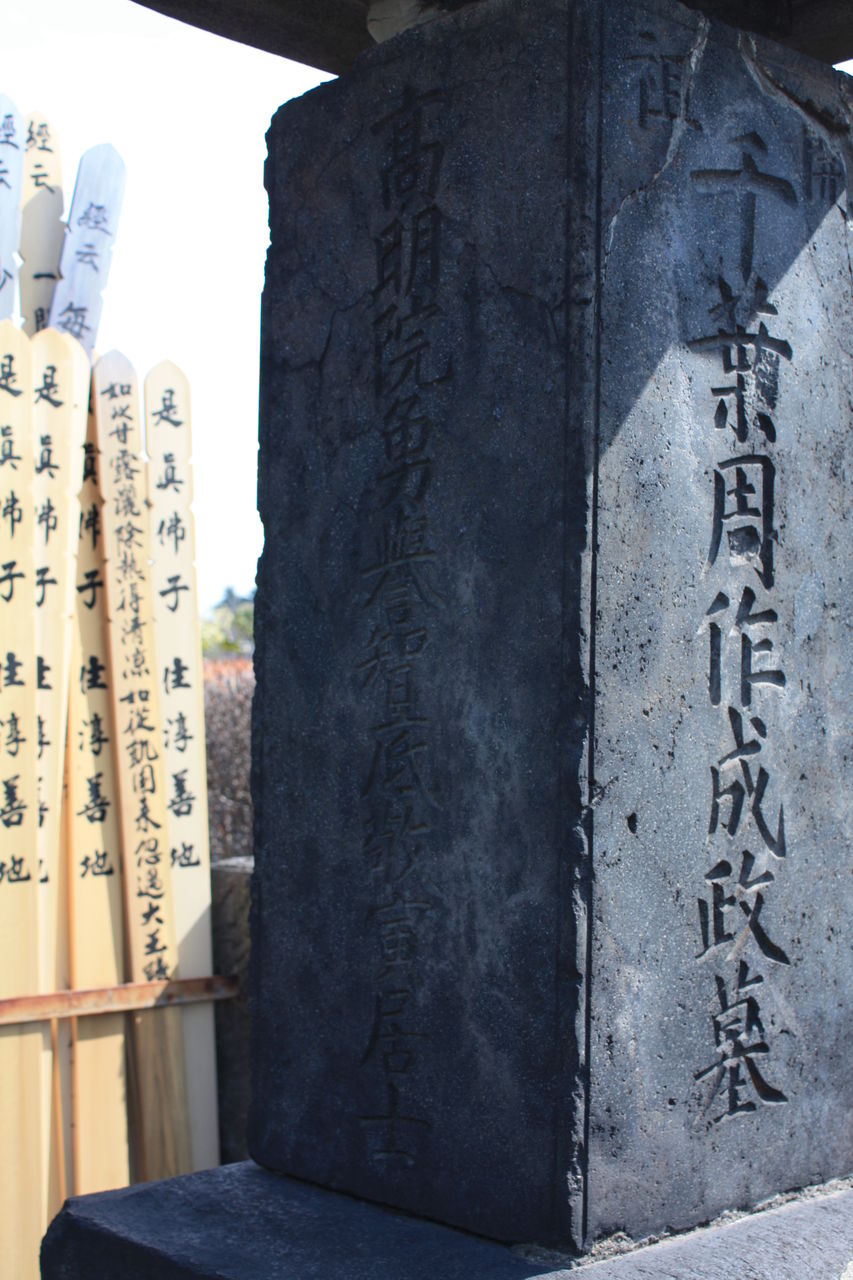 開祖
千葉周作成政墓
高明院勇譽智底敬寅居士
是眞佛子住淳善地
如以甘露灑除熱得清凉如從飢国来忽遇大王膳
眞佛子住淳善地
是眞佛子住淳善地
是眞佛子住淳善地
經云毎
經云一
經云